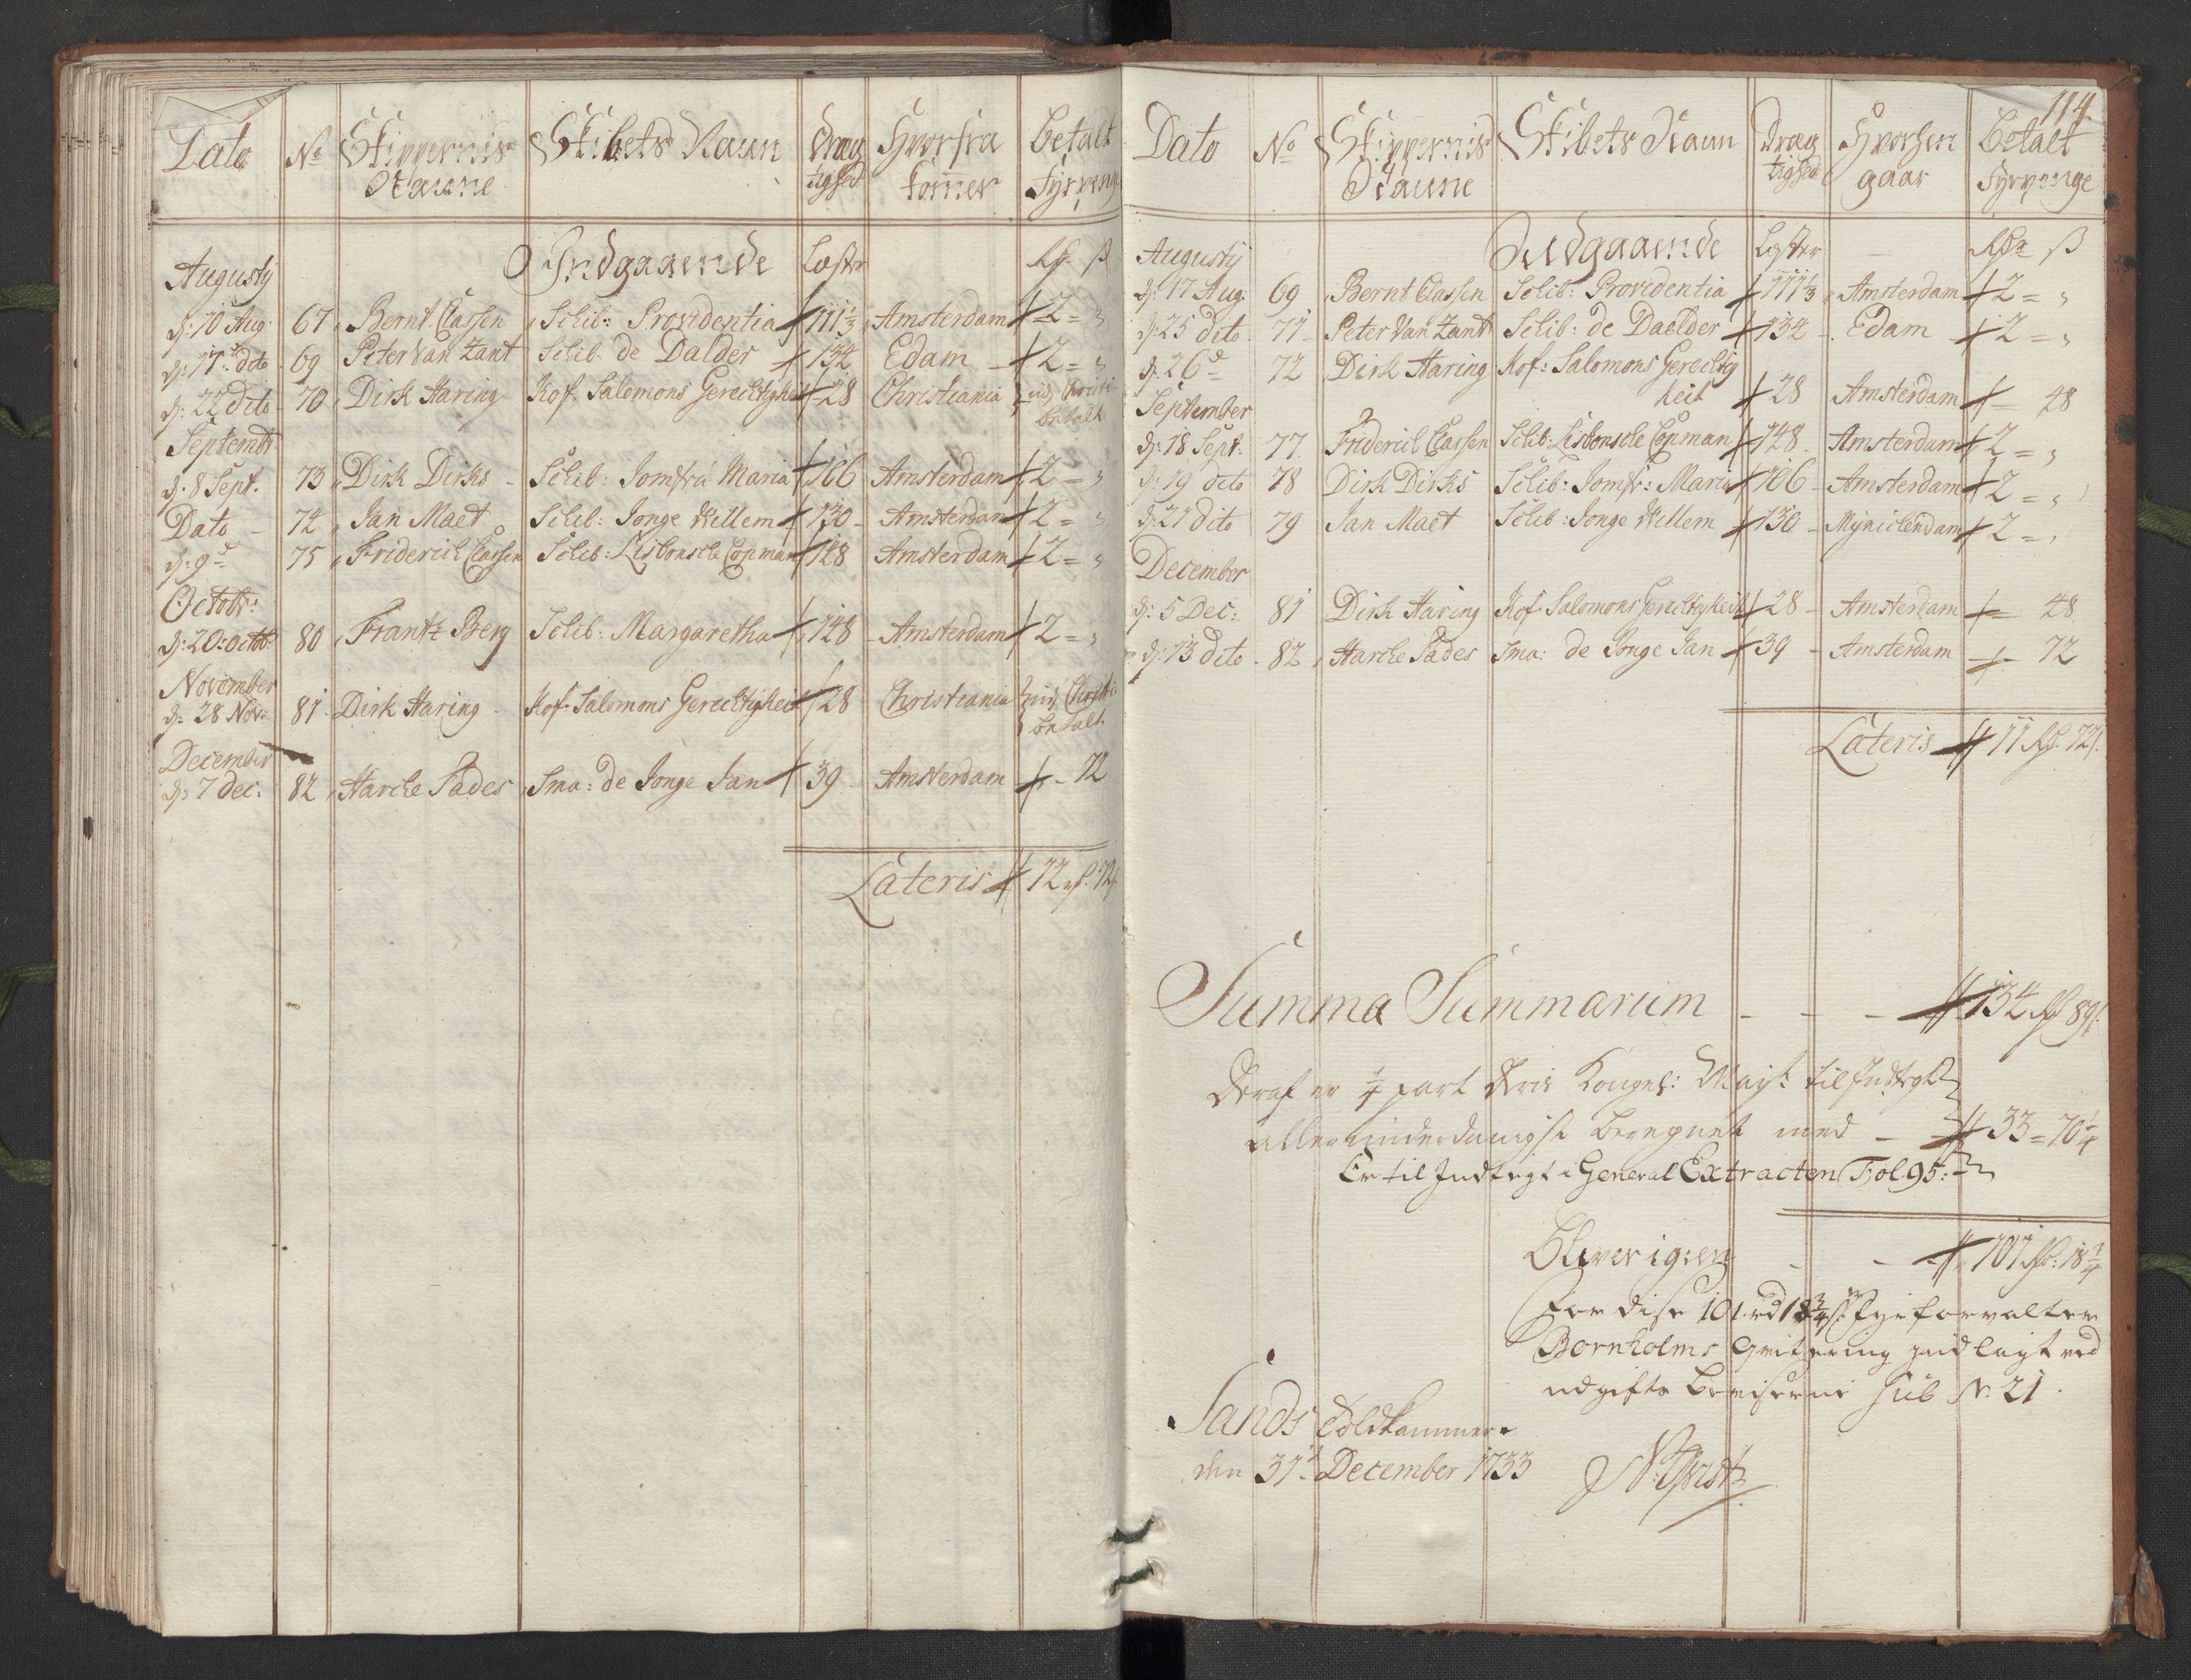 Dato No Skippernis Skibets Naun Dræg Hvorfra Betalt
Naune tighed komer Fyrpenge
Indgaaende Læster Rdr ß
Augusty
d: 10 Aug: 67 Bernt Classen Schib: Providentia 111 1/3 Amsterdam 2 = "
d: 17 dito 69 Peter Van Zant Schib: de Dalder 134 Edam 2 = "
d: 22 dito 70 Dirk Haring Hof: Salomons Gerechtigkeit 28 Christiania udj Christi:
betalt
Septembr
d: 8 Sept. 73 Dirk Dirks Schib: Jomfru Maria 106 Amsterdam 2 = "
Dato 74 Jan Maet Schib: Jonge Willem 130 Amsterdam 2 = "
d: 9d 75 Friderich Classen Schib: Lisbonsche Copman 148 Amsterdam 2 = "
Octobr:
d: 20: octob: 80 Frantz Berg Schib: Margaretha 148 Amsterdam 2 = "
November
d: 28 Nov: 81 Dirk Haring Hof: Salomons Gerechtigkeit 28 Christiania udj Christi:
betalt
December
d: 7 dec: 82 Harche Sades Sma: de Jonge Jan 39 Amsterdam - 72
Lateris 12 rd. 72 ß
114.
Dato No Skippernis Skibets Naun Dræg Hvorhen Betalt
Naune tighed gaar Fyrpenge
Udgaaende Læster Rdr ß
Augusty
d: 17 Aug: 69 Bernt Classen Schib: Providentia 111 1/3 Amsterdam 2 = "
d: 25 dito 71 Peter Van Zant Schib: de Daelder 134 Edam 2 = "
d: 26d 72 Dirk Haring Hof: Salomons Gerechtig
keit 28 Amsterdam = 48
September
d: 18 Sept: 77 Friderich Classen Schib: Lisbonsche Copman 148 Amsterdam 2 = "
d: 19 dito 78 Dirk Dirks Schib: Jomfr: Maria 106 Amsterdam 2 = "
d: 21 dito 79 Jan Maet Schib: Jonge Willem 130 Mynichendam 2 = "
December
d: 5 Dec: 81 Dirk Haring Hof: Salomons Gerechtigkeit 28 Amsterdam = 48
d: 13 dito 82 Harche Sades Sma: de Jonge Jan 39 Amsterdam - 72
Lateris 11 Rd. 72 ß
Summa Summarum - - - 134 Rd 89 ß
Deraf er 1/4 part Deris Kongel: Mayt: til Indtegt
allerunderdanigst beregnet med - 33 = 70 1/4
Er til Indtegt i General Extracten Fol. 95:
Bliver igien - - 101 Rd: 18 3/4
For dise 101 rd 18 3/4 ß Fyrforvalter
Bornholms qvitering indlagt ved
udgifts beviserne sub No 21.
Sands Toldkammer
den 31t December 1733